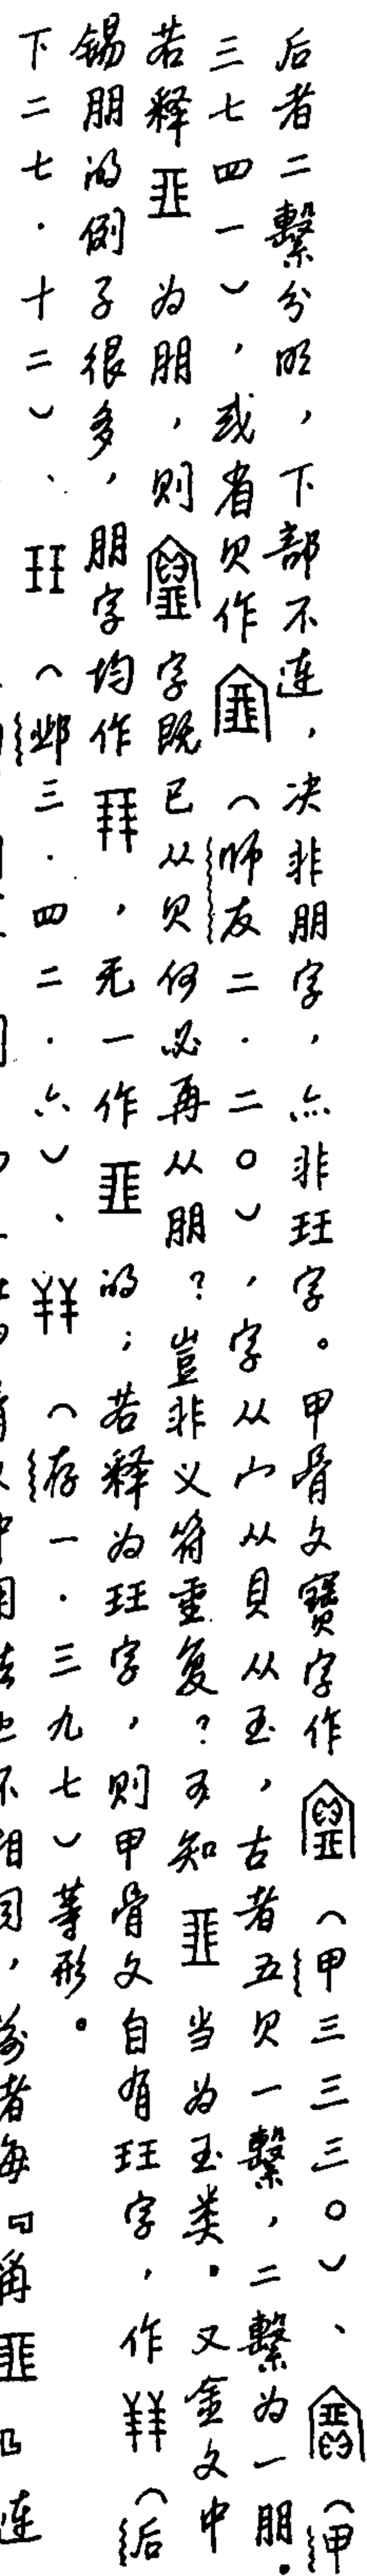 后者二繫分明，下部不连，决非朋字，亦非玨字。甲骨文寶字作（甲三三三〇）、（甲
三七四一），或省贝作（师友二·二〇），字从宀从貝从玉，古者五贝一繫，二繫为一朋。
若释为朋，则字既已从贝何必再从朋？豈非义符重复？可知当为玉类。又金文中
锡朋的例子很多，朋字均作，无一作的；若释为玨字，则甲骨文自有玨字，作（后
下二七·十二）、（邺三·四二·六）、（存一·三九七）等形。